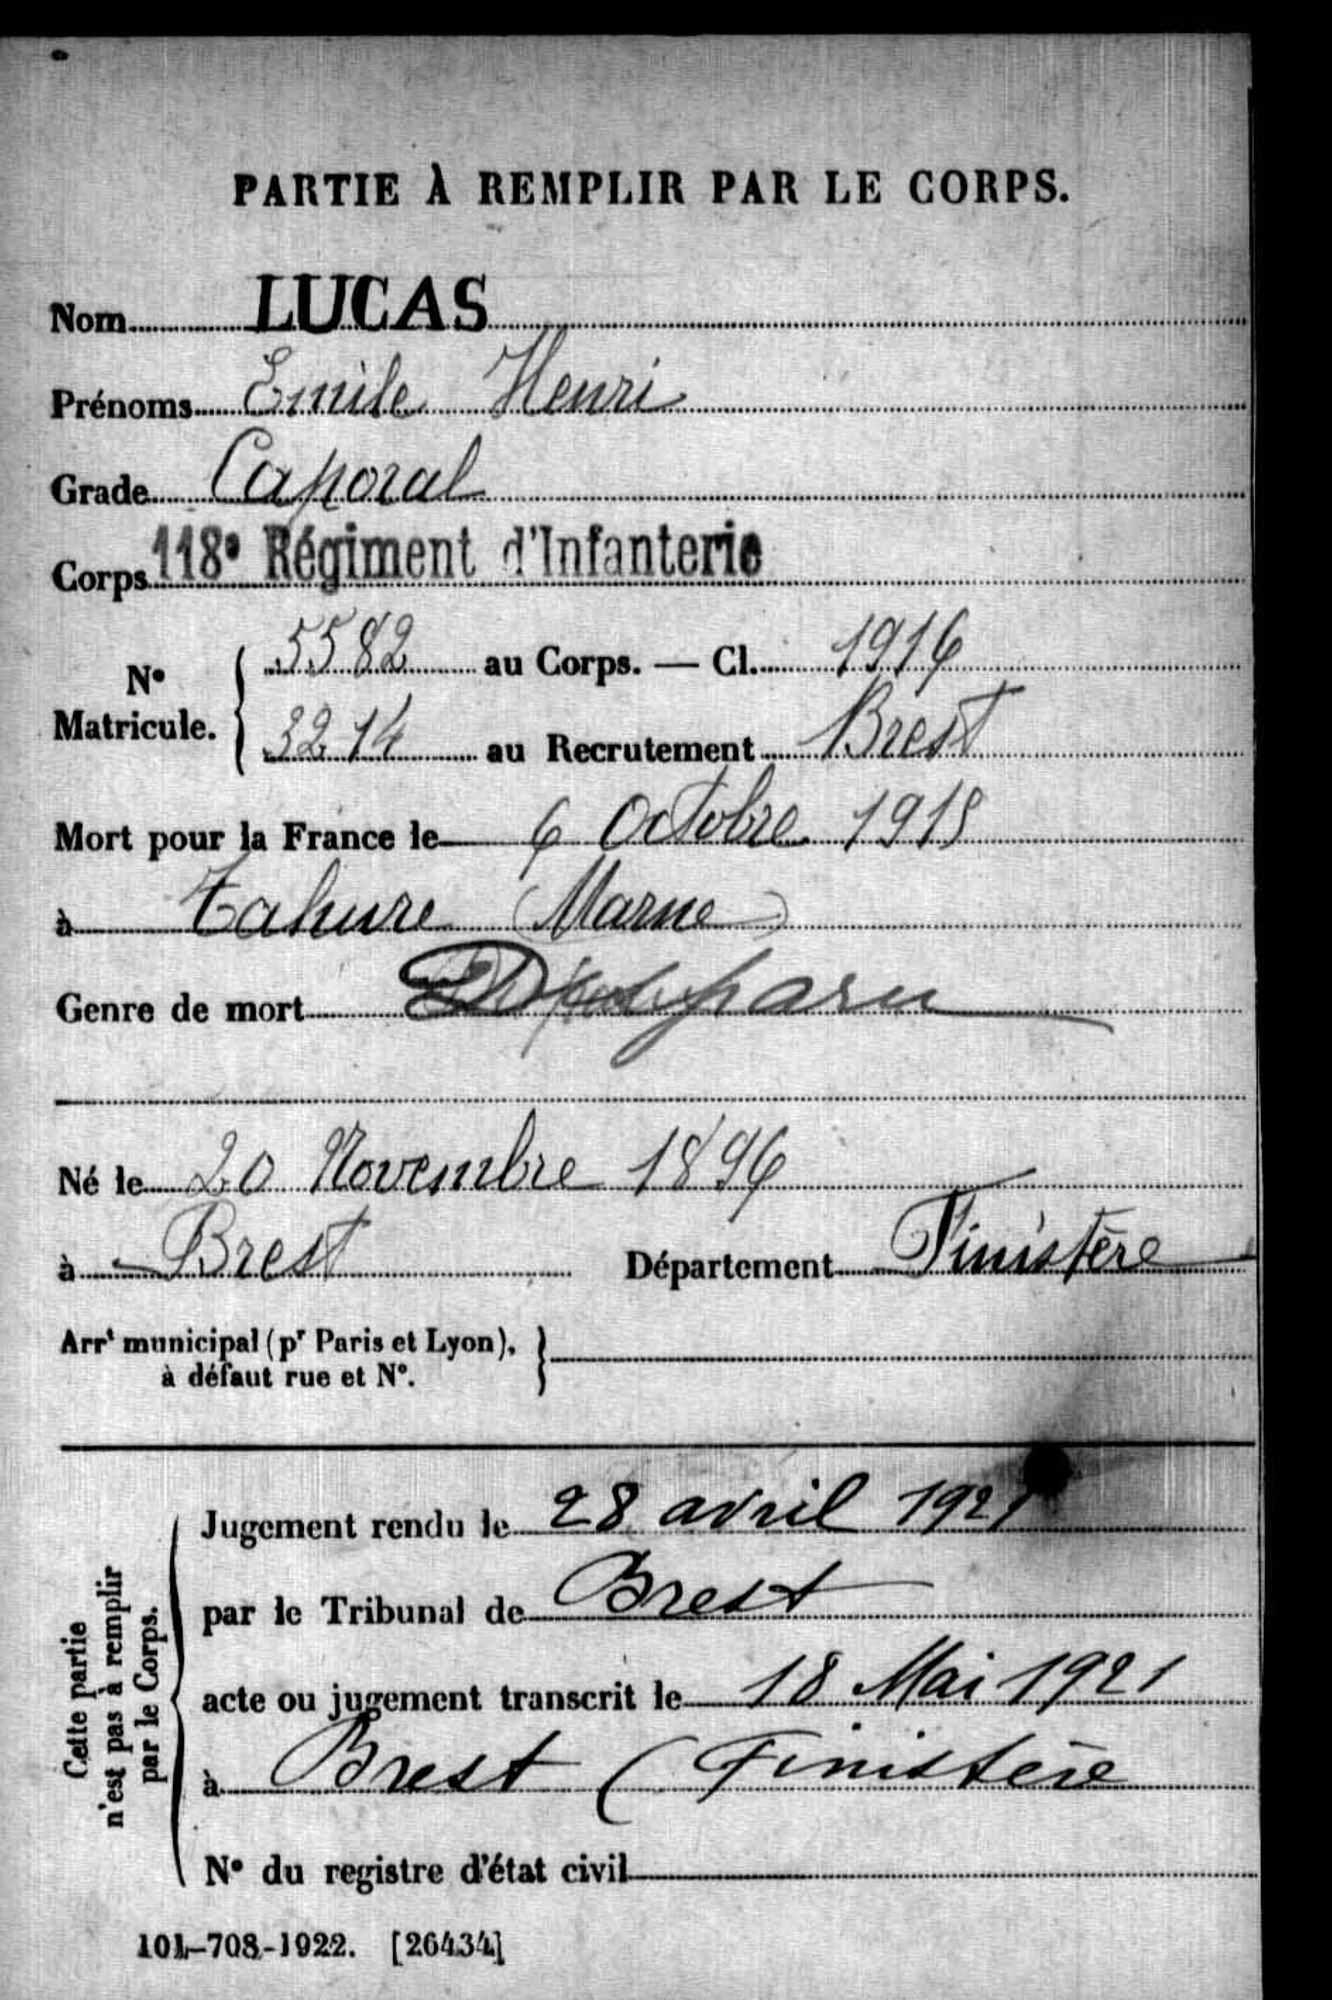 PARTIE À REMPLIR PAR LE CORPS.
Nom LUCAS
Prénoms Emile Henri
Grade Caporal
Corps 118e Régiment d'Infanterie
N° Matricule. { 5582 au Corps. — Cl. 1916
3214 au Recrutement Brest
Mort pour la France le 6 Octobre 1915
à Tahure (Marne)
Genre de mort Disparu
Né le 20 Novembre 1896
à Brest Département Finistère
Arrt municipal (pr Paris et Lyon), }
à défaut rue et N°.
Cette partie
n'est pas à remplir
par le Corps.
Jugement rendu le 28 avril 1921
par le Tribunal de Brest
acte ou jugement transcrit le 18 Mai 1921
à Brest (Finistère
N° du registre d'état civil
101-708-1922. [26434]